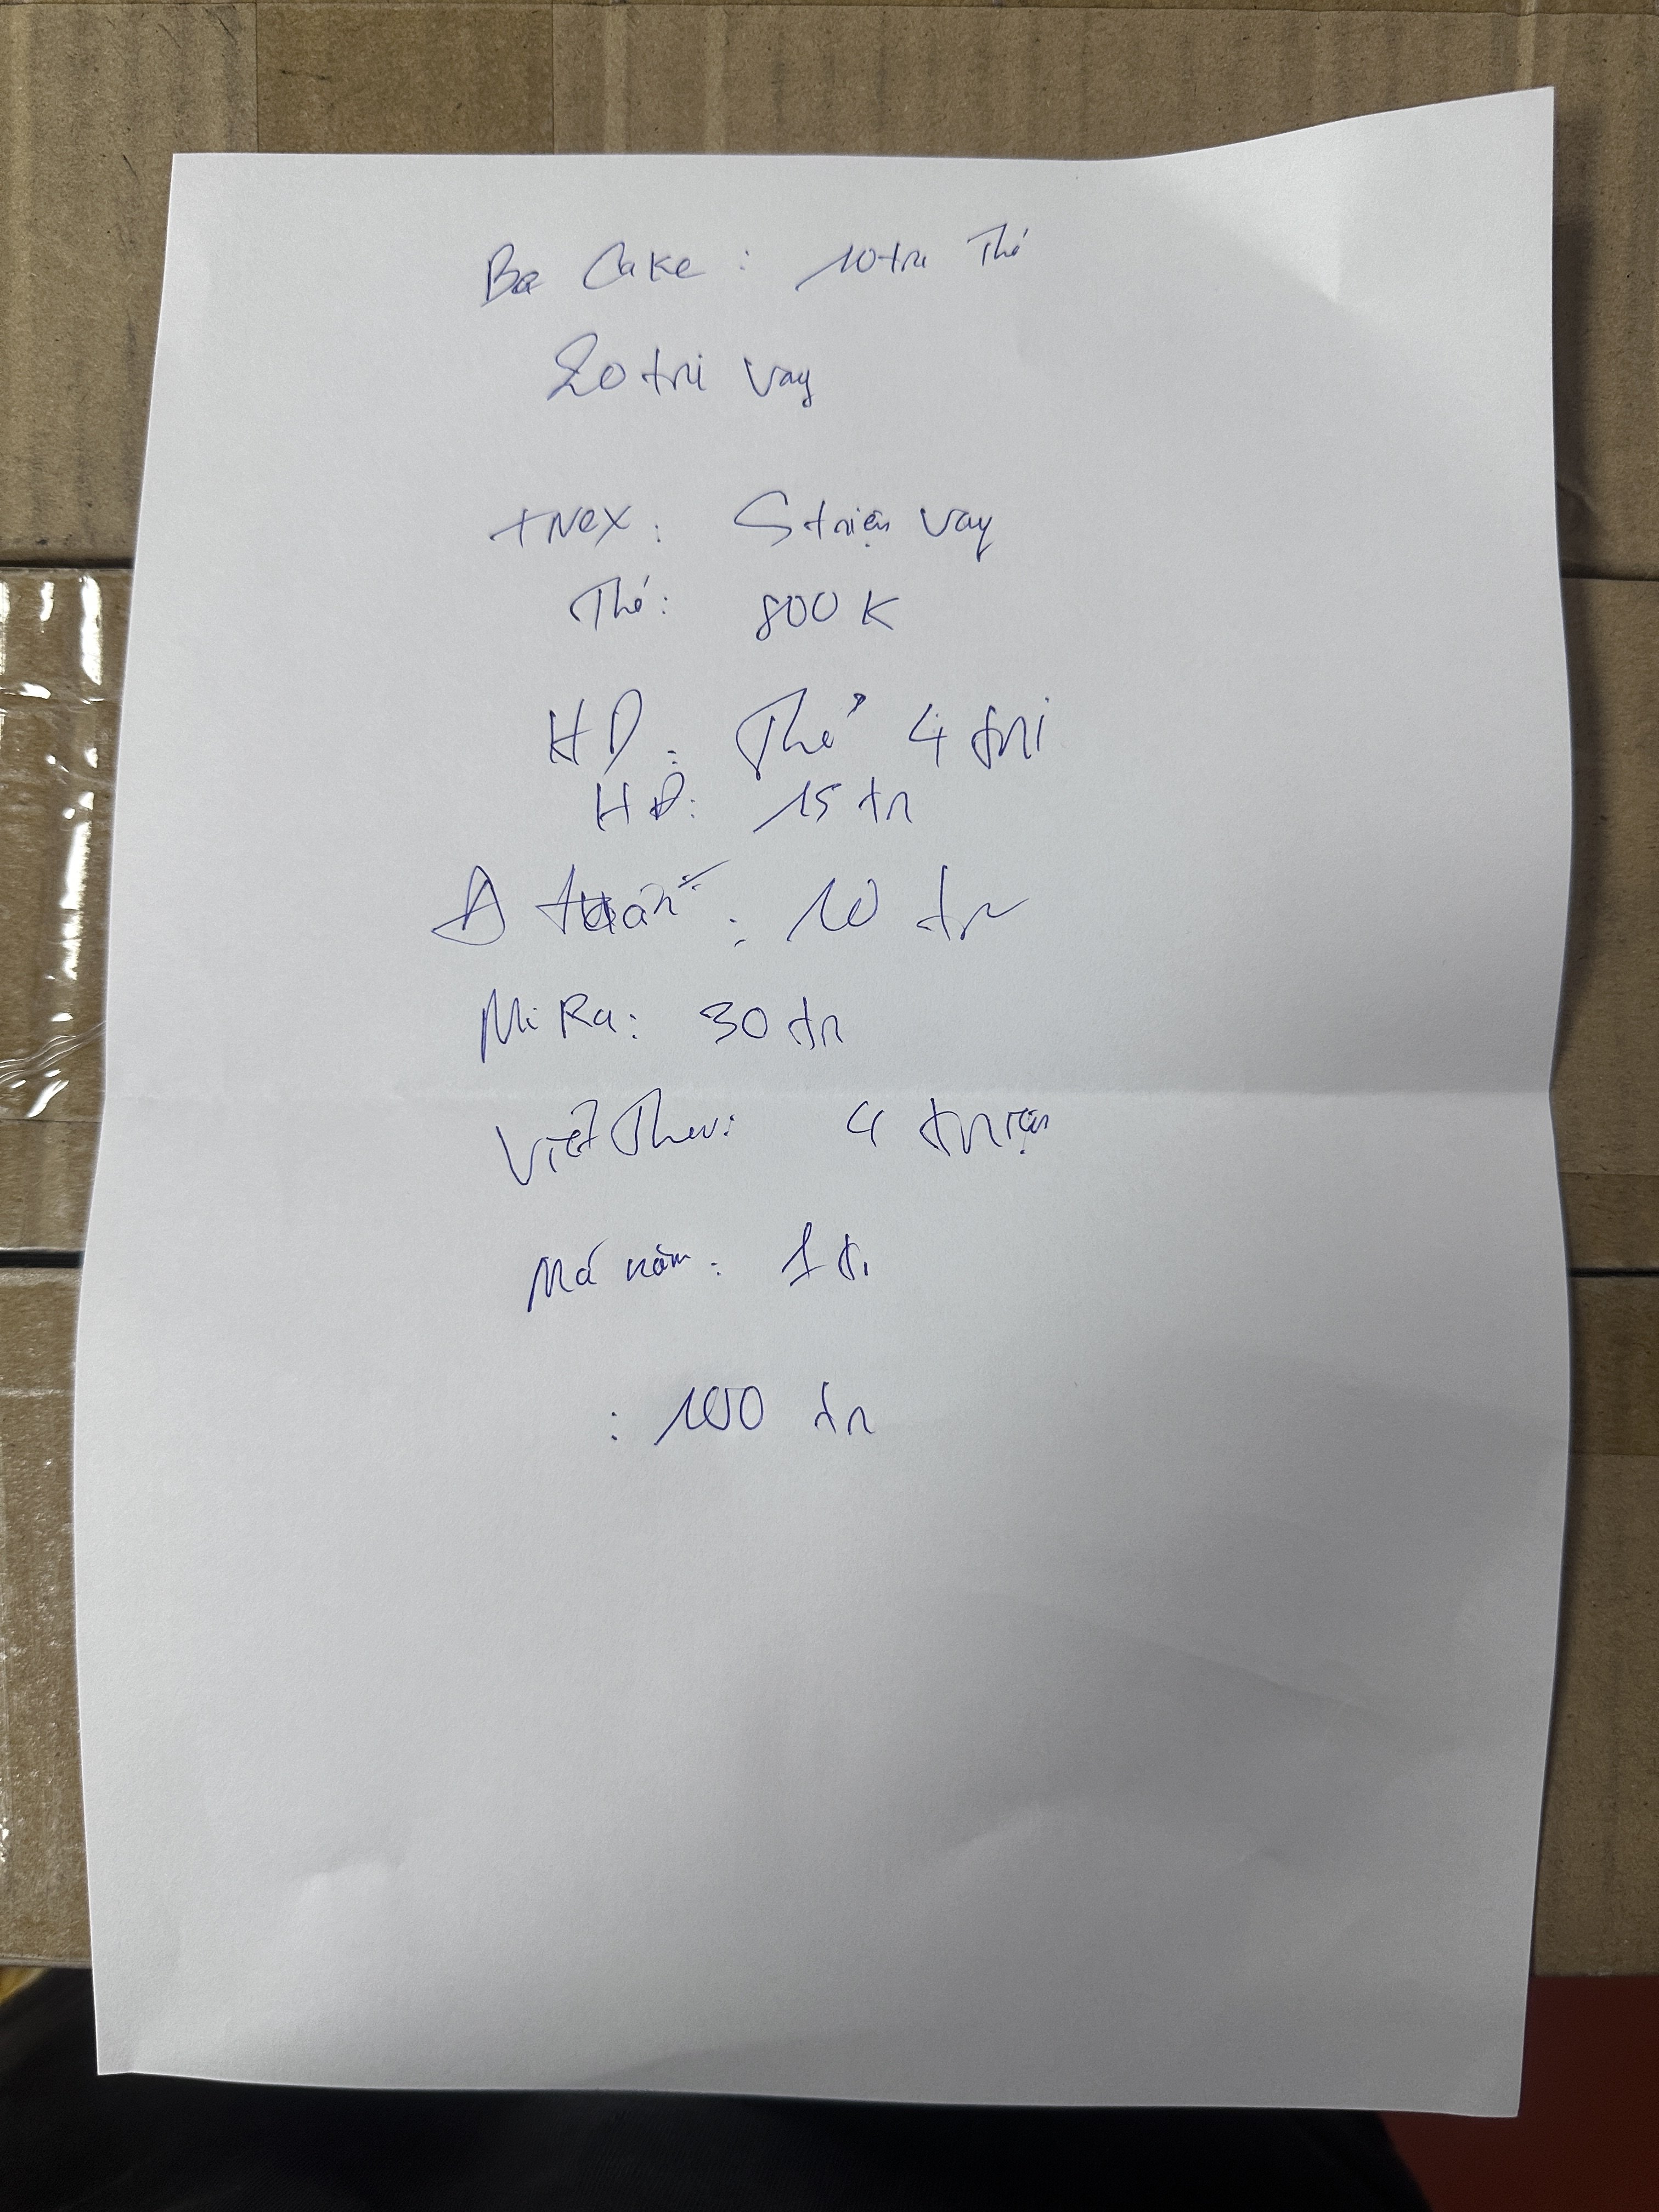 Be Cake : 10 tri Thẻ
20 tri vay
TNEX : 5 triệu vay
Thẻ: 800 K
HD : Thẻ 4 tri
HD: 15 tr
A tuấn : 10 tr
Mi Ra: 30 tr
Việt Thu: 4 triệu
Má năm : 1 tr
: 100 tr